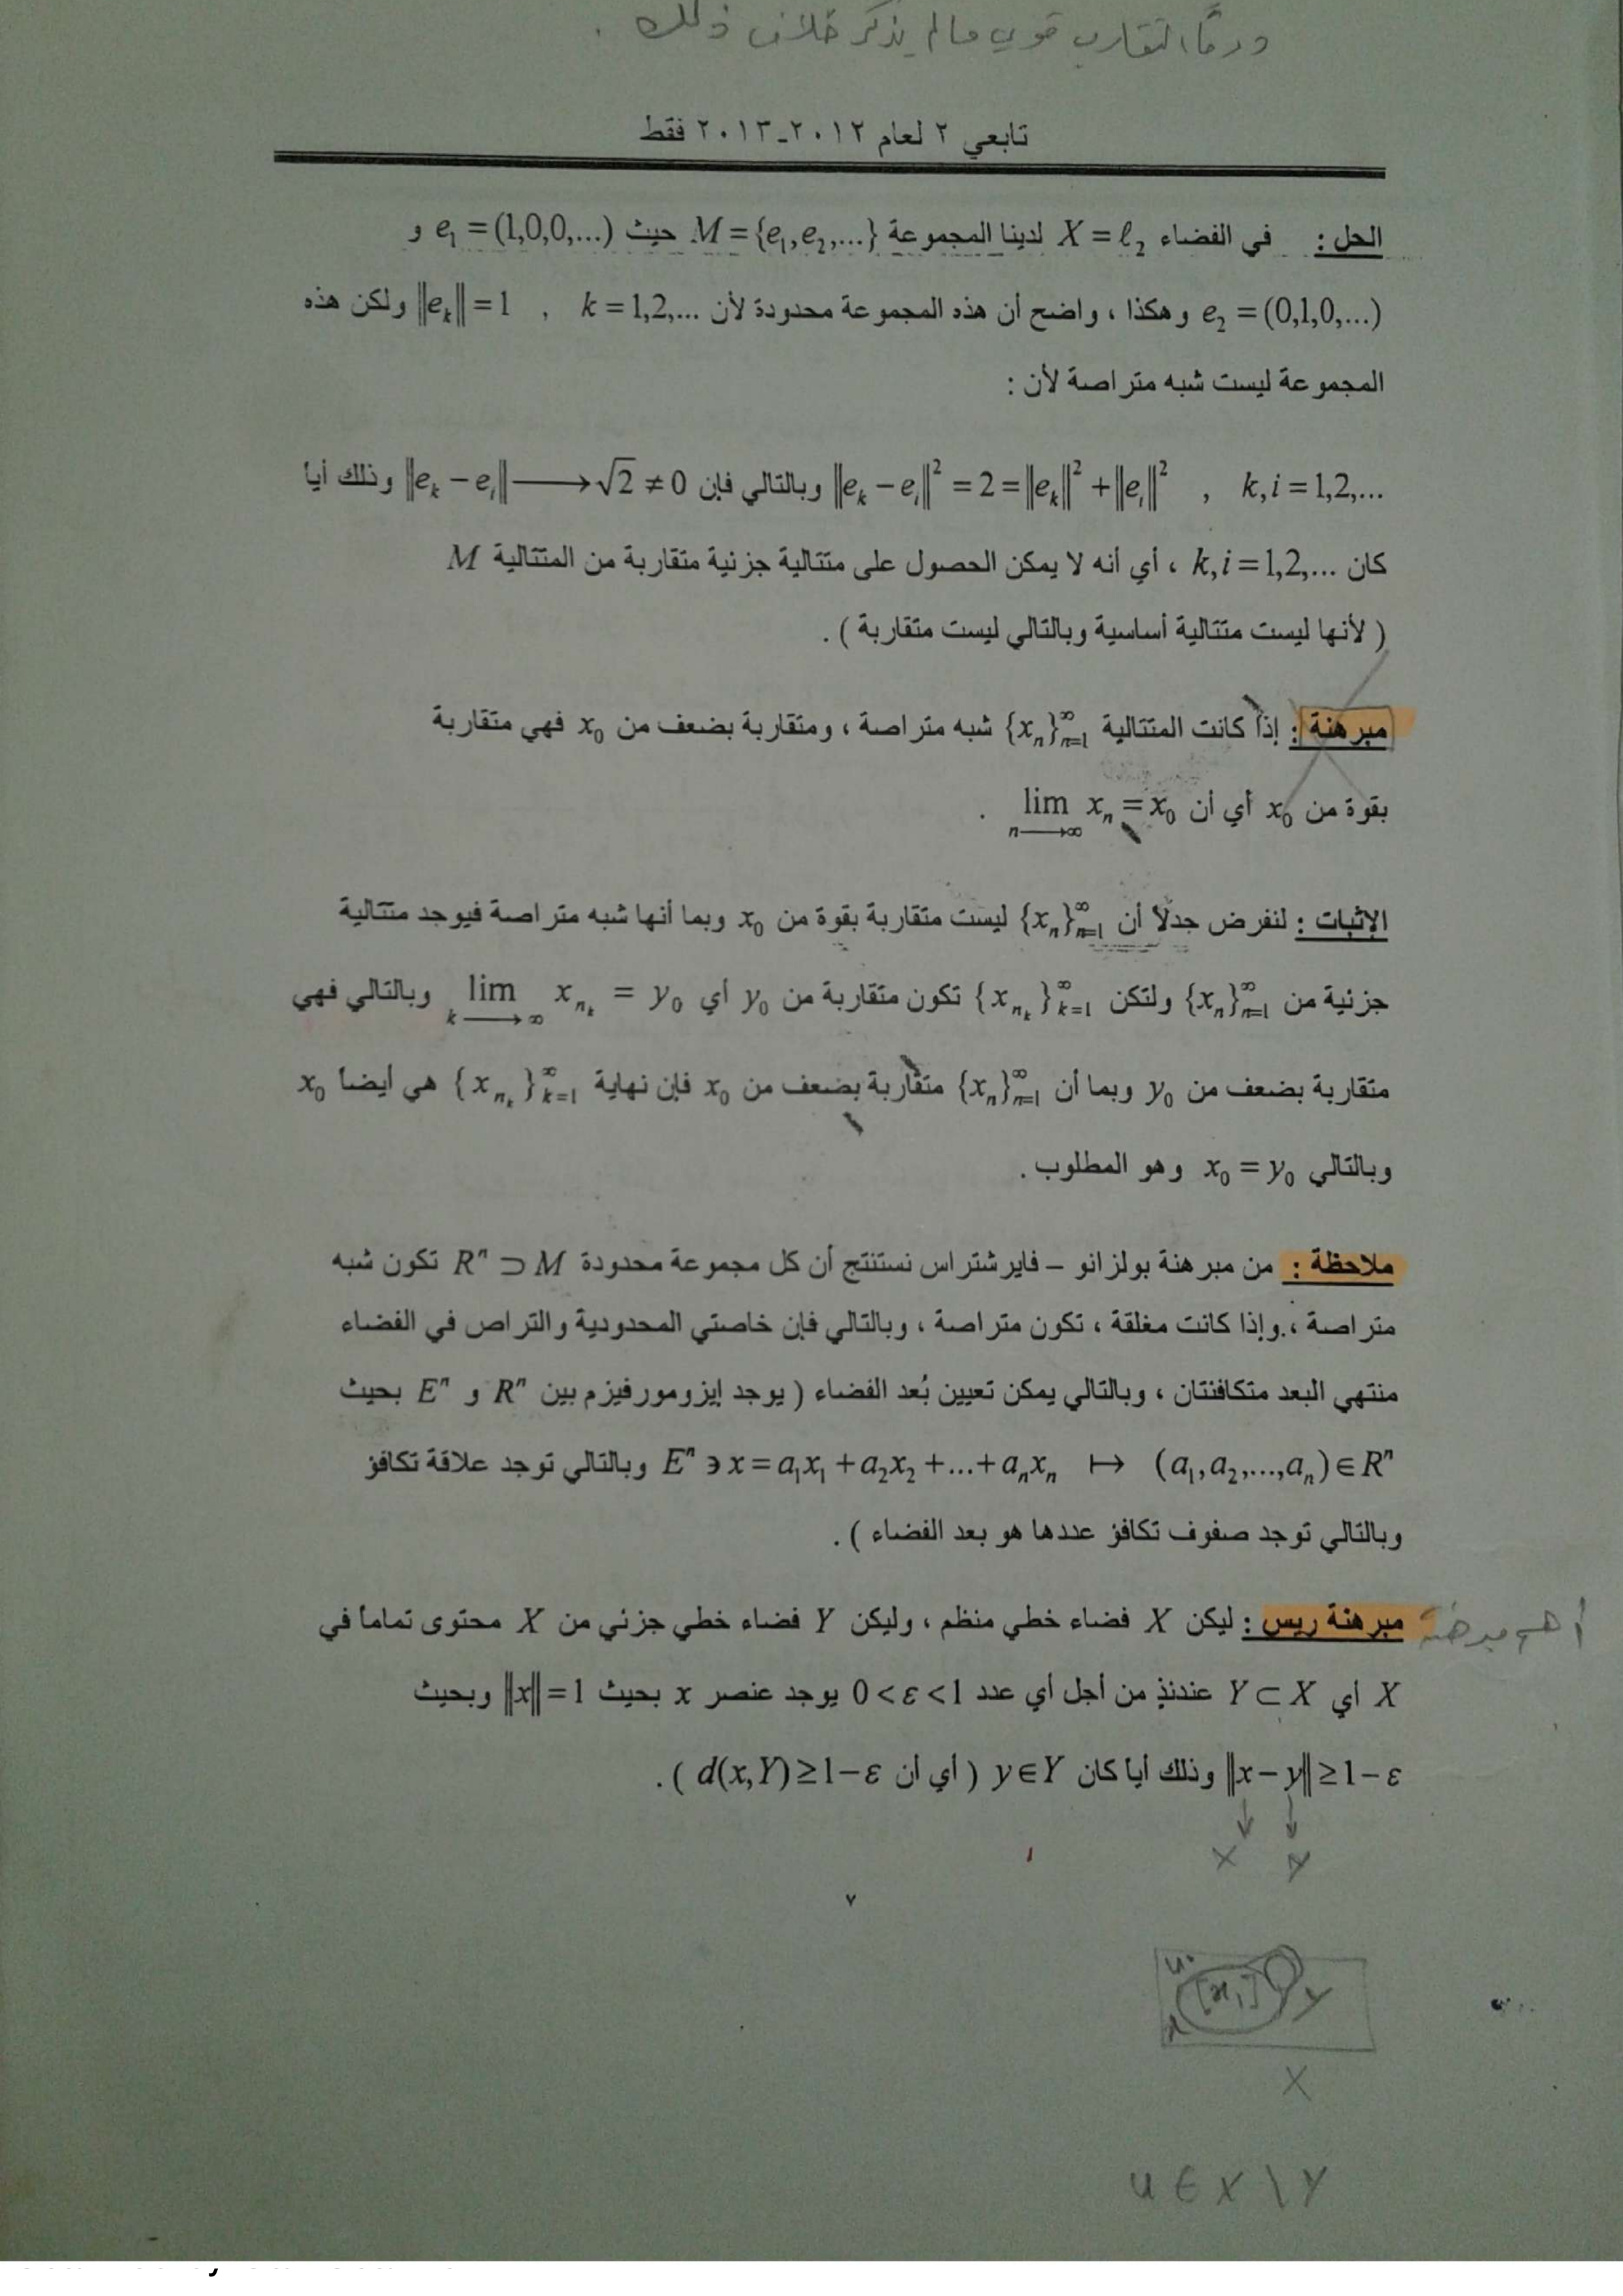 ودوماً التقارب قوي ما لم يذكر خلاف ذلك .
تابعي ٢ لعام ٢٠١٢-٢٠١٣ فقط
الحل : في الفضاء X = ℓ₂ لدينا المجموعة M = {e₁, e₂, ...} حيث e₁ = (1,0,0,...) و
e₂ = (0,1,0,...) وهكذا ، واضح أن هذه المجموعة محدودة لأن ‖eₖ‖ = 1 , k = 1,2,... ولكن هذه
المجموعة ليست شبه متراصة لأن :
‖eₖ − eᵢ‖² = 2 = ‖eₖ‖² + ‖eᵢ‖² , k,i = 1,2,... وبالتالي فإن ‖eₖ − eᵢ‖ ⟶ √2 ≠ 0 وذلك أيا
كان k,i = 1,2,... ، أي أنه لا يمكن الحصول على متتالية جزئية متقاربة من المتتالية M
( لأنها ليست متتالية أساسية وبالتالي ليست متقاربة ) .
مبرهنة : إذا كانت المتتالية {xₙ}ₙ₌₁^∞ شبه متراصة ، ومتقاربة بضعف من x₀ فهي متقاربة
بقوة من x₀ أي أن lim_{n⟶∞} xₙ = x₀ .
الإثبات : لنفرض جدلاً أن {xₙ}ₙ₌₁^∞ ليست متقاربة بقوة من x₀ وبما أنها شبه متراصة فيوجد متتالية
جزئية من {xₙ}ₙ₌₁^∞ ولتكن {x_{n_k}}ₖ₌₁^∞ تكون متقاربة من y₀ أي lim_{k⟶∞} x_{n_k} = y₀ وبالتالي فهي
متقاربة بضعف من y₀ وبما أن {xₙ}ₙ₌₁^∞ متقاربة بضعف من x₀ فإن نهاية {x_{n_k}}ₖ₌₁^∞ هي أيضاً x₀
وبالتالي x₀ = y₀ وهو المطلوب .
ملاحظة : من مبرهنة بولزانو – فايرشتراس نستنتج أن كل مجموعة محدودة Rⁿ ⊃ M تكون شبه
متراصة ، وإذا كانت مغلقة ، تكون متراصة ، وبالتالي فإن خاصتي المحدودية والتراص في الفضاء
منتهي البعد متكافئتان ، وبالتالي يمكن تعيين بُعد الفضاء ( يوجد إيزومورفيزم بين Rⁿ و Eⁿ بحيث
Eⁿ ∋ x = a₁x₁ + a₂x₂ + ... + aₙxₙ ↦ (a₁, a₂, ..., aₙ) ∈ Rⁿ وبالتالي توجد علاقة تكافؤ
وبالتالي توجد صفوف تكافؤ عددها هو بعد الفضاء ) .
أهم مبرهنة
مبرهنة ريس : ليكن X فضاء خطي منظم ، وليكن Y فضاء خطي جزئي من X محتوى تماماً في
X أي Y ⊂ X عندئذٍ من أجل أي عدد 0 < ε < 1 يوجد عنصر x بحيث ‖x‖ = 1 وبحيث
‖x − y‖ ≥ 1 − ε وذلك أيا كان y ∈ Y ( أي أن d(x,Y) ≥ 1 − ε ) .
↓ ↓
X Y
٧
u
[x₁]
Y
x
X
u ∈ X \ Y